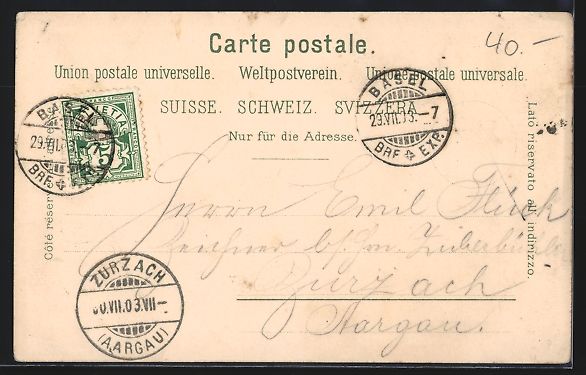 Carte postale.
40.-
Union postale universelle. Weltpostverein. Unione postale universale.
SUISSE. SCHWEIZ. SVIZZERA.
Nur für die Adresse.
BASEL
29.VII.03.-7
BRF. EXP.
HELVETIA
5
BASEL
29.VII.03.-7
BRF. EXP.
Côté réservé
Lato riservato all' indirizzo.
Herrn Emil Flück
Zeichner b/Hrn.
Zurzach
Aargau.
ZURZACH
30.VII.03.VII-
(AARGAU)